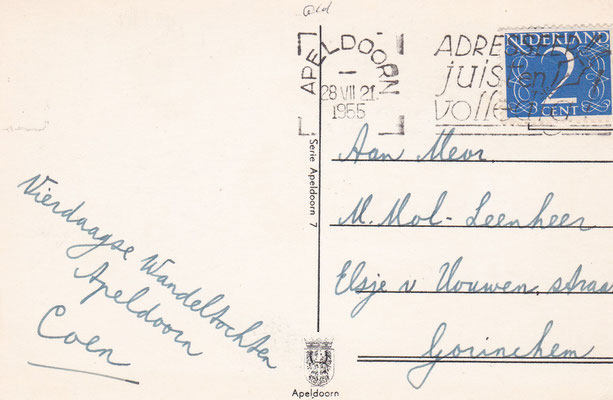 Old
APELDOORN
28 VII 21
1955
ADRESSEER
juist en
volledig
NEDERLAND
2
CENT
Aan Mevr.
M. Mol-Leenheer
Elsje v Houwen straa
Gorinchem
Vierdaagse Wandeltochten
Apeldoorn
Coen
Serie Apeldoorn 7
Apeldoorn